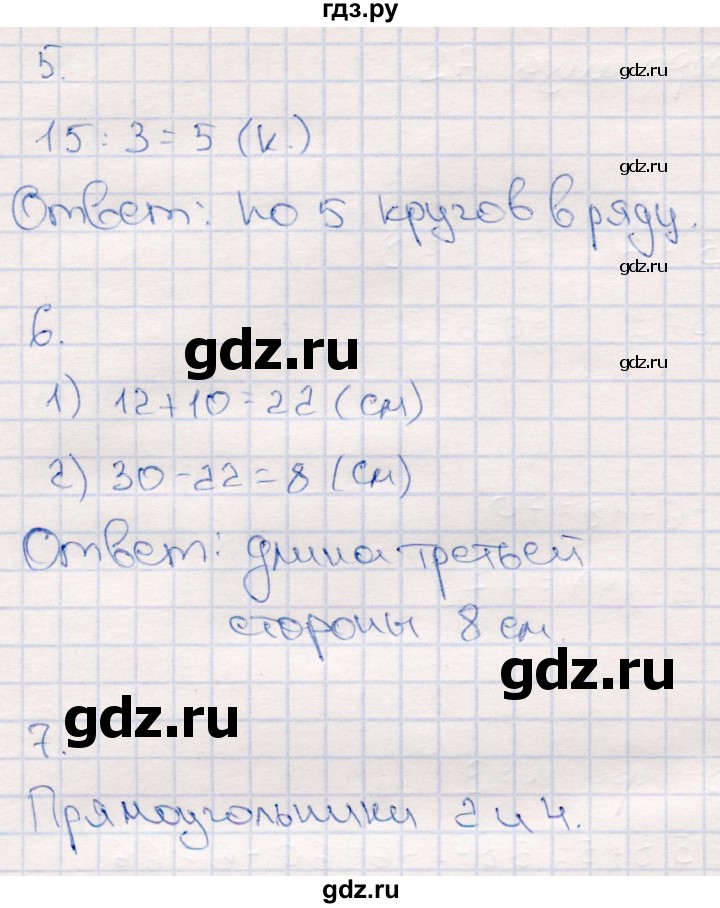 гдз.ру
5.
gdz.ru
15 : 3 = 5 (к.)
gdz.ru
Ответ: по 5 кругов в ряду.
gdz.ru
6.
gdz.ru
gdz.ru
1) 12+10=22 (см)
2) 30-22=8 (см)
Ответ: длина третьей
стороны 8 см.
gdz.ru
gdz.ru
7.
Прямоугольники 2 и 4.
gdz.ru